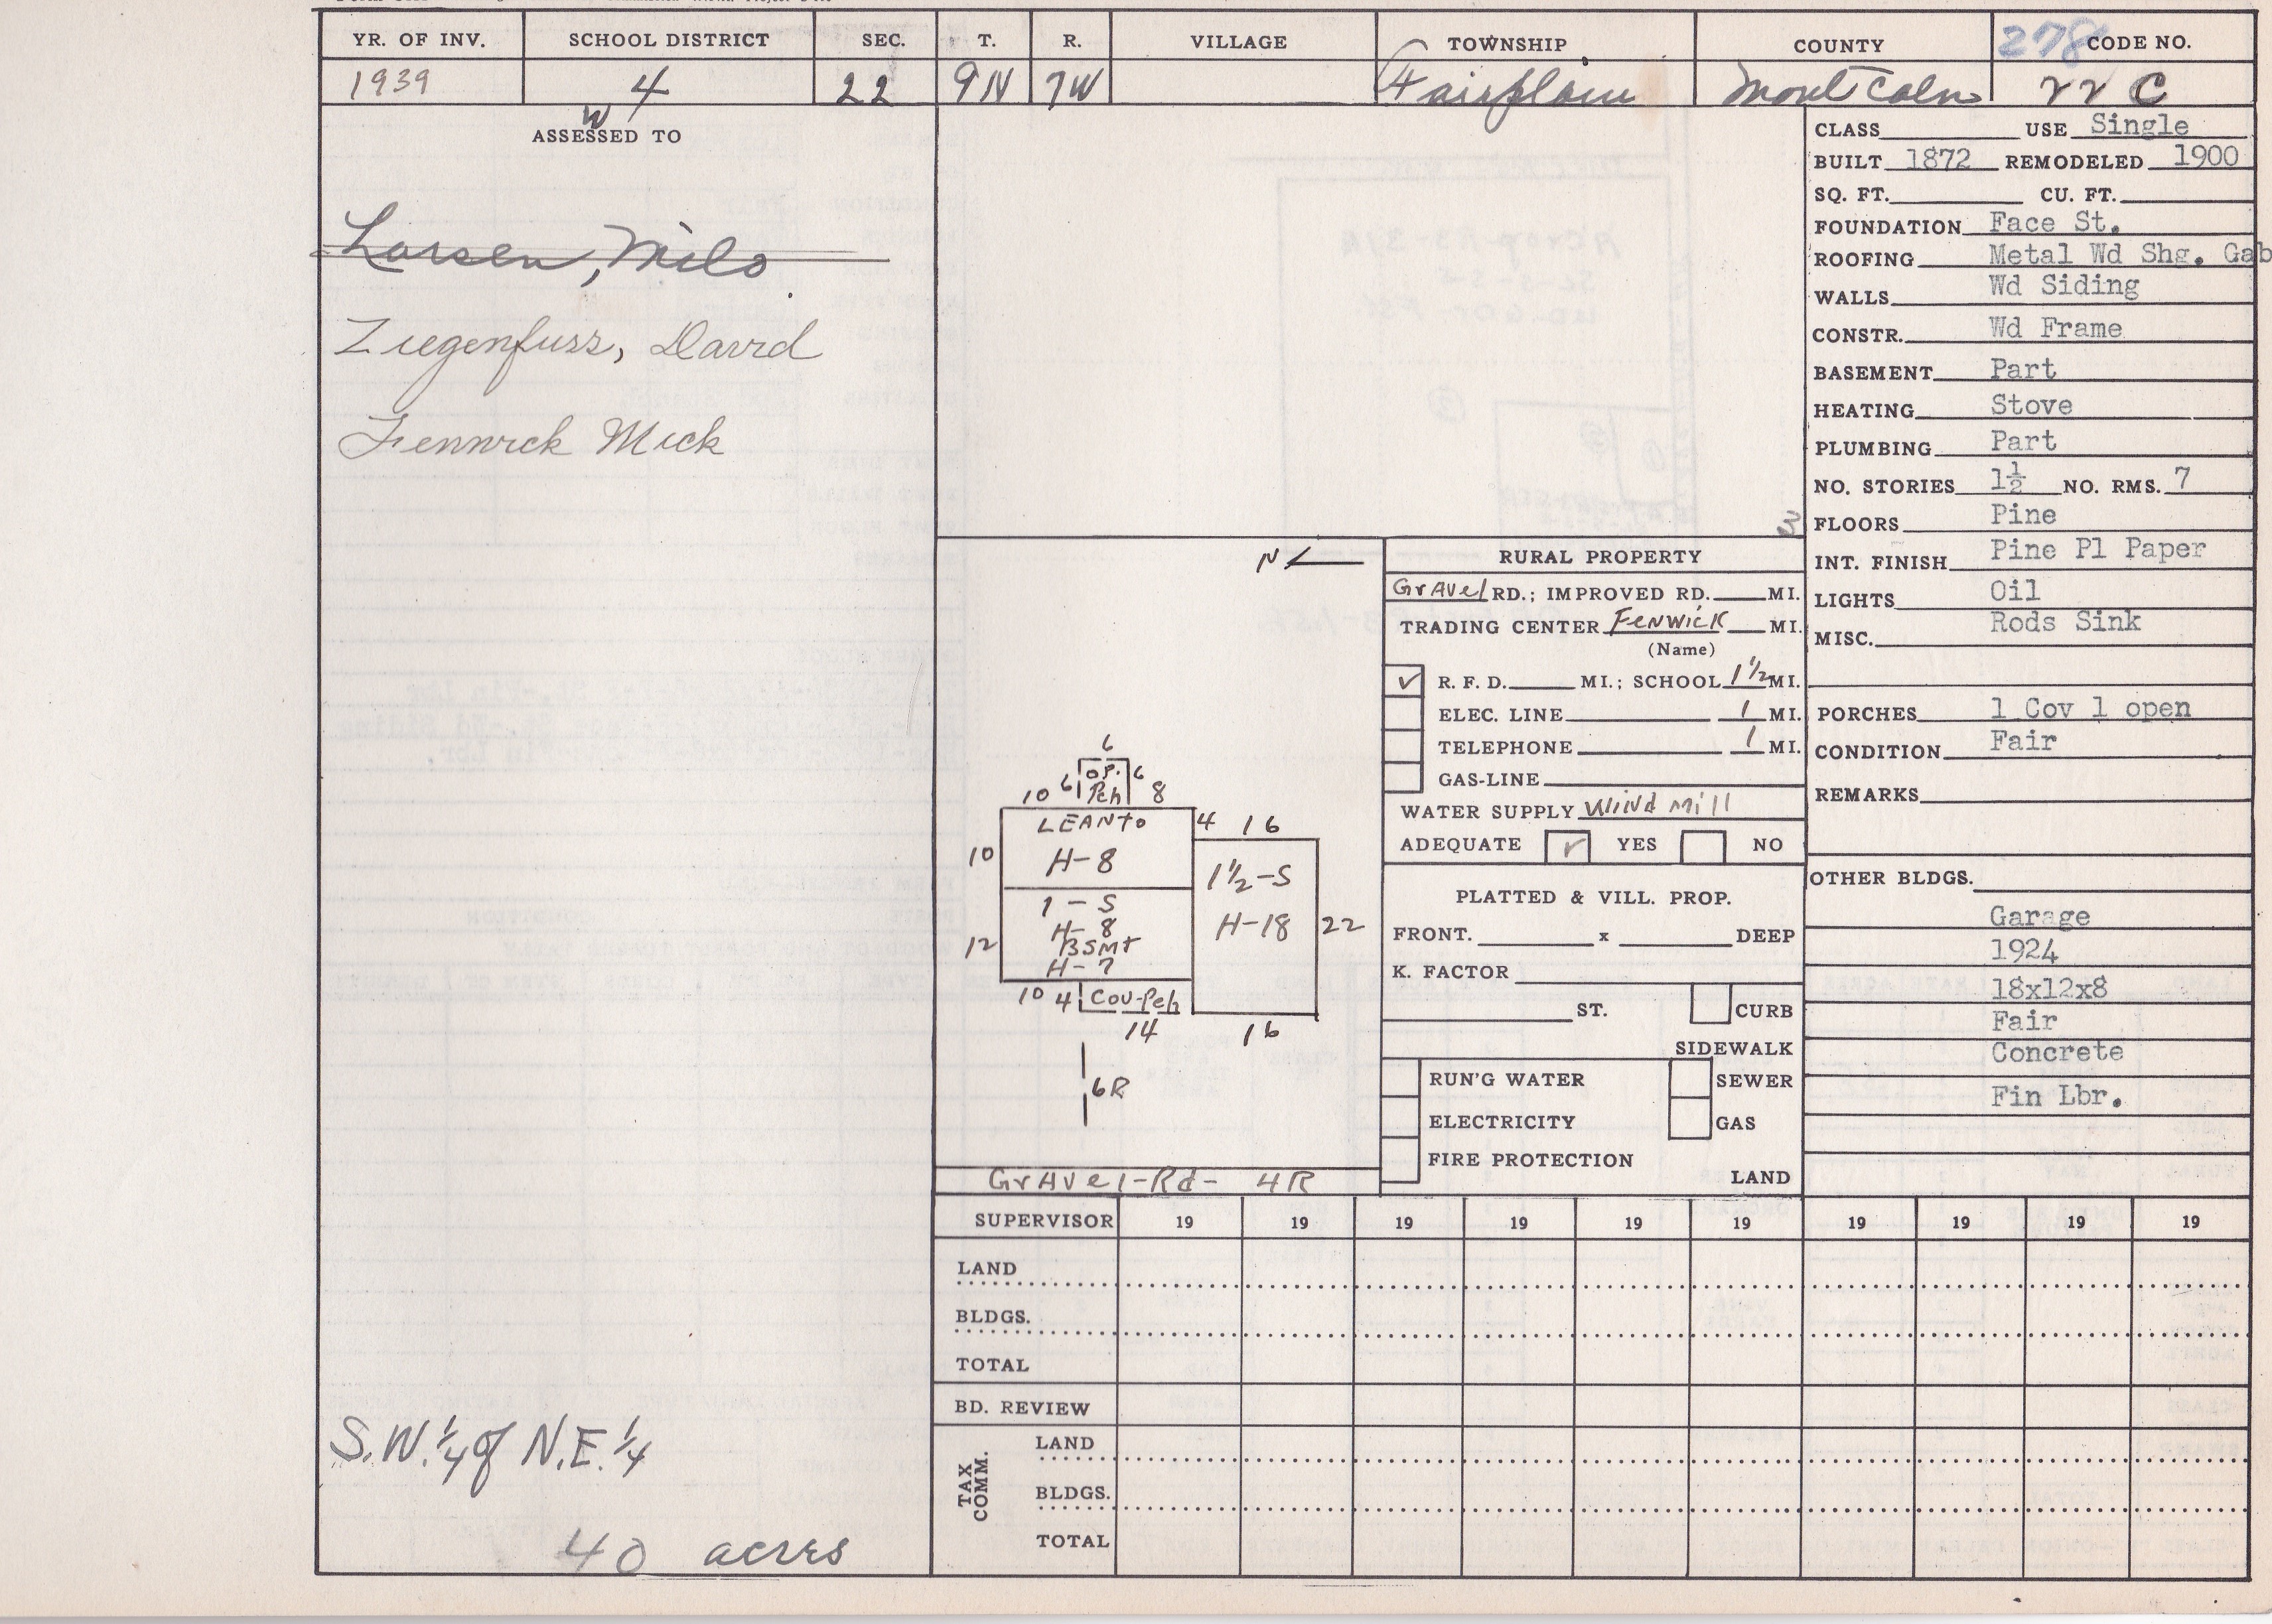 YR. OF INV. SCHOOL DISTRICT SEC. T. R. VILLAGE TOWNSHIP COUNTY 278 CODE NO.
1939 4 22 9N 7W Fairplain Montcalm 22 C
W
ASSESSED TO
Larsen, Milo
Ziegenfuss, David
Fennwick Mick
S.W. 1/4 of N.E. 1/4
40 acres
N
6
6 OP. 6
10 Pch 8
LEANto 4 16
10 H-8 1 1/2-S
1 - S
H-8 H-18 22
12 BSMt
H-7
10 4 Cov-Pch
14 16
6R
GrAvel-Rd- 4R
3
RURAL PROPERTY
GrAvel RD.; IMPROVED RD. MI.
TRADING CENTER Fenwick MI.
(Name)
✓ R. F. D. MI.; SCHOOL 1 1/2 MI.
ELEC. LINE 1 MI.
TELEPHONE 1 MI.
GAS-LINE
WATER SUPPLY Wind Mill
ADEQUATE ✓ YES NO
PLATTED & VILL. PROP.
FRONT. x DEEP
K. FACTOR
ST. CURB
SIDEWALK
RUN'G WATER SEWER
ELECTRICITY GAS
FIRE PROTECTION
LAND
CLASS USE Single
BUILT 1872 REMODELED 1900
SQ. FT. CU. FT.
FOUNDATION Face St.
ROOFING Metal Wd Shg. Gab
WALLS Wd Siding
CONSTR. Wd Frame
BASEMENT Part
HEATING Stove
PLUMBING Part
NO. STORIES 1½ NO. RMS. 7
FLOORS Pine
INT. FINISH Pine Pl Paper
LIGHTS Oil
MISC. Rods Sink
PORCHES 1 Cov 1 open
CONDITION Fair
REMARKS
OTHER BLDGS.
Garage
1924
18x12x8
Fair
Concrete
Fin Lbr.
SUPERVISOR 19 19 19 19 19 19 19 19 19 19
LAND
BLDGS.
TOTAL
BD. REVIEW
TAX COMM.
LAND
BLDGS.
TOTAL